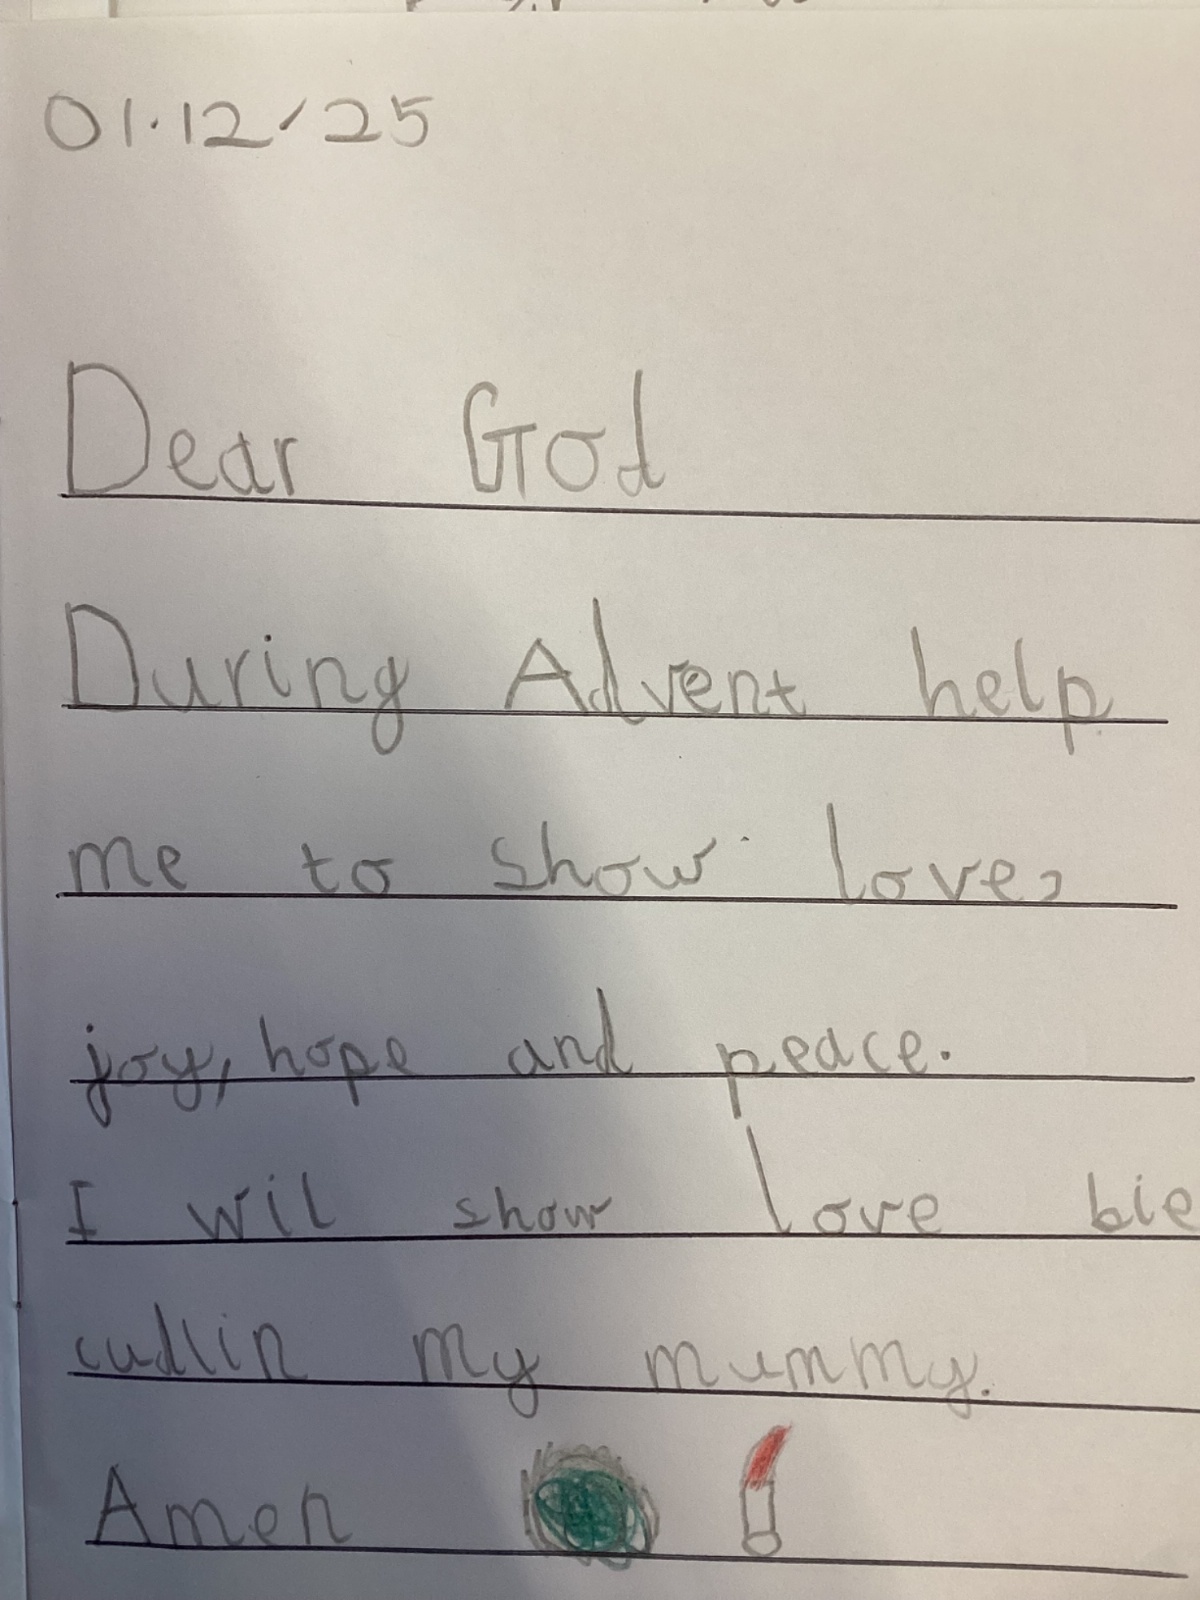 01.12/25
Dear God
During Advent help
me to show love,
joy, hope and peace.
I wil show love bie
cudlin my mummy.
Amen